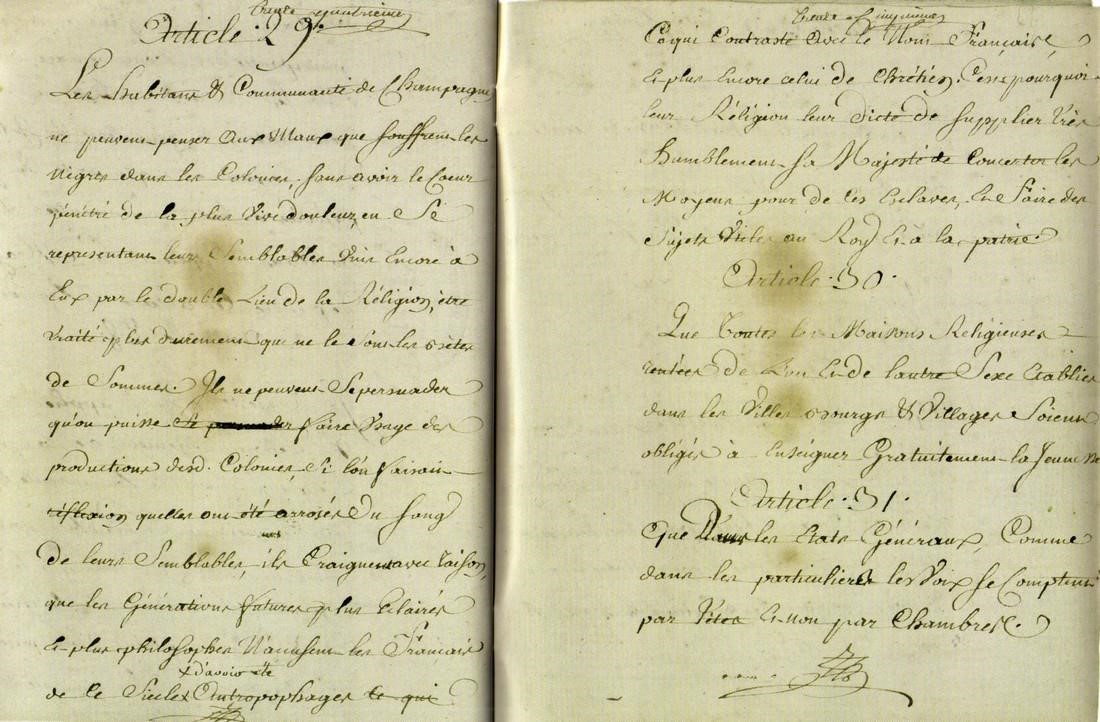 trente quatrieme
Article. 29e
Les habitans & Communauté de Champagney
ne peuvent penser aux Maux que souffrent les
Négres dans les Colonies, sans avoir le Coeur
pénétré de la plus Vive douleur, en Se
representant leurs Semblables Unis Encore à
Eux par le double Lien de la Réligion, être
traité plus durement que ne le sont les Bêtes
de Sommes. Ils ne peuvent Se persuader
qu'on puisse faire Usage des
productions desd. Colonies, Si l'on faisait
réflexion quelles ont été arrosés du Sang
de leurs Semblables, ils Craignent avec raison,
que les Générations futures plus Eclairés
Et plus philosophes N'accusent les Français
de ce Siecle + d'avoir été Antropophages Ce qui
trente cinquieme
Ce qui Contraste avec le Nom Français,
Et plus Encore celui de Chrétien. C'est pourquoi
leur Réligion leur dicte de Supplier très
humblement Sa Majesté de Concerter les
Moyens pour de ces Esclaves, En faire des
Sujets Utiles au Roy Et à la patrie
Article. 30.
Que Toutes les Maisons Religieuses
rentées de L'un Et de l'autre Sexe Etablies
dans les Villes Bourgs & Villages Soient
obligés à Enseigner Gratuitement la Jeunesse
Article. 31.
Que Dans les Etats Généraux, Comme
dans les particuliers les Voix se Comptent
par Têtes Et non par Chambres.